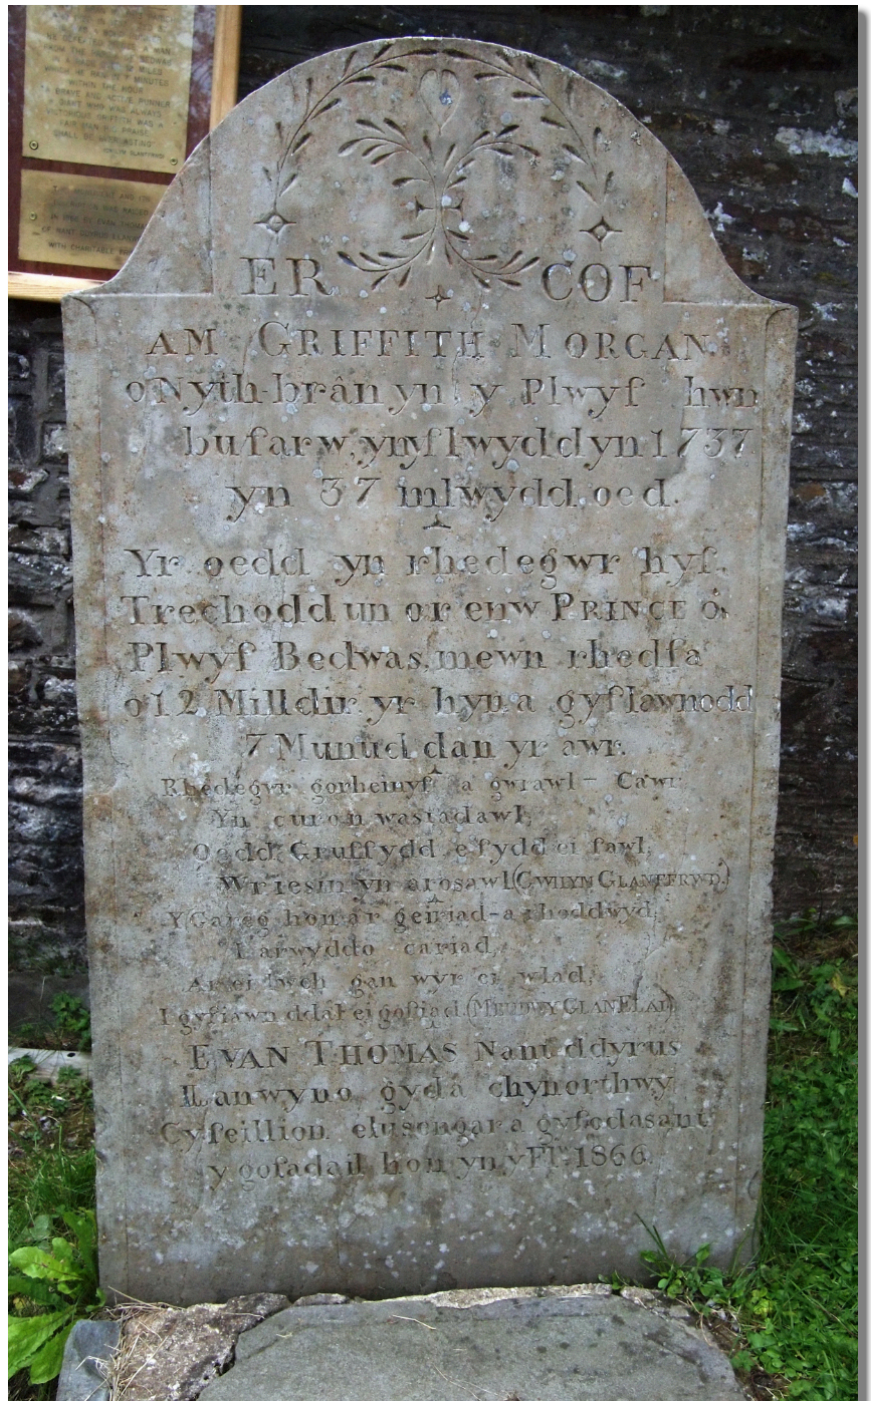 HE
FROM THE
MILES
MINUTES
WITHIN THE HOUR
A BRAVE
WAS ALWAYS
VICTORIOUS GRIFFITH WAS A
PRAISE
SHALL BE
WITH
ER COF
AM GRIFFITH MORGAN
o Nyth-brân yn y Plwyf hwn
bu farw, yn y flwyddyn 1737
yn 37 mlwydd oed.
Yr oedd yn rhedegwr hyf.
Trechodd un o'r enw PRINCE o,
Plwyf Bedwas, mewn rhedfa
o 12 Milldir yr hyn a gyflawnodd
7 Munud dan yr awr.
Rhedegyr gorheinyf a gwrawl - Cawr
Yn curo'n wastadawl,
Oedd Gruffydd, e fydd ei fawl,
Wr iesin yn arosawl (GWILYN GLANFFRWD)
Y Gareg hon ar geiriad - a rhoddwyd,
I arwyddo cariad,
Ar ei lwch gan wyr ei wlad,
I gyfiawn ddal ei gofiad. (MEUDWY GLAN ELAI)
EVAN THOMAS Nant ddyrus
Llanwyno gyda chynorthwy
Cyfeillion elusengar a gyfodasant
y gofadail hon yn y Fl. 1866